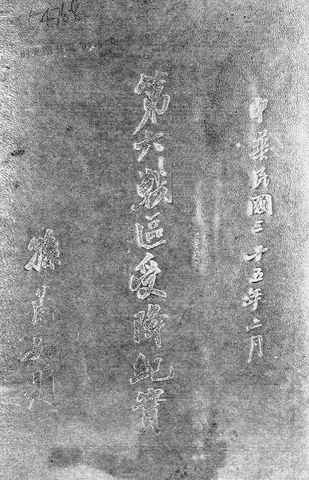 中華民國三十五年二月
第六戰區受降紀實
孫蔚如題